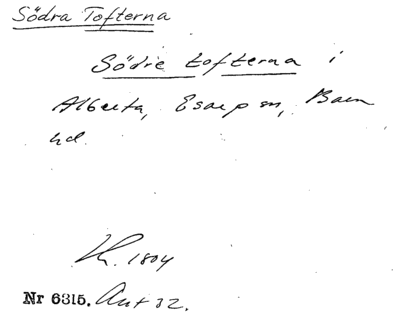 Södra Tofterna
Södre tofterna i
Alberta, Esarp sn, Bara
hd.
Kr. 1804
Nr 6315. Ant 32.